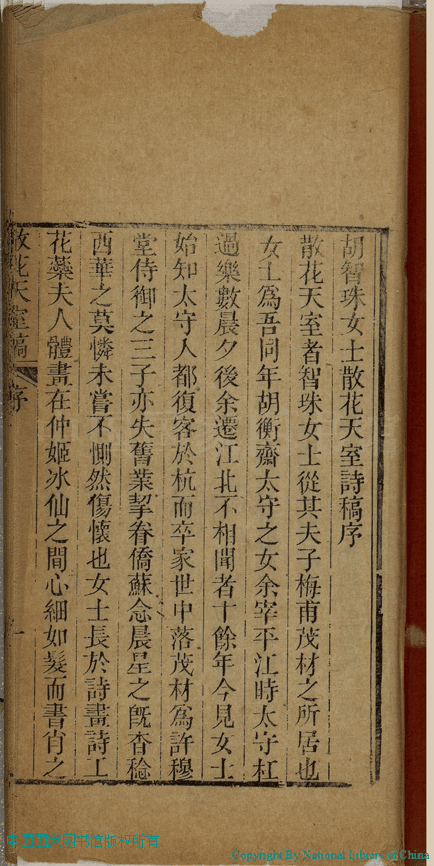 胡智珠女士散花天室詩稿序
散花天室者智珠女士從其夫子梅甫茂材之所居也
女士爲吾同年胡衡齋太守之女余宰平江時太守枉
過樂數晨夕後余遷江北不相聞者十餘年今見女士
始知太守入都復客於杭而卒家世中落茂材爲許穆
堂侍御之三子亦失舊業挈眷僑蘇念晨星之旣杳稔
西華之莫憐未嘗不惻然傷懷也女士長於詩畫詩工
花蘂夫人體畫在仲姬冰仙之間心細如髮而書肖之
散花天室稿 序 一
Copyright By National Library of China